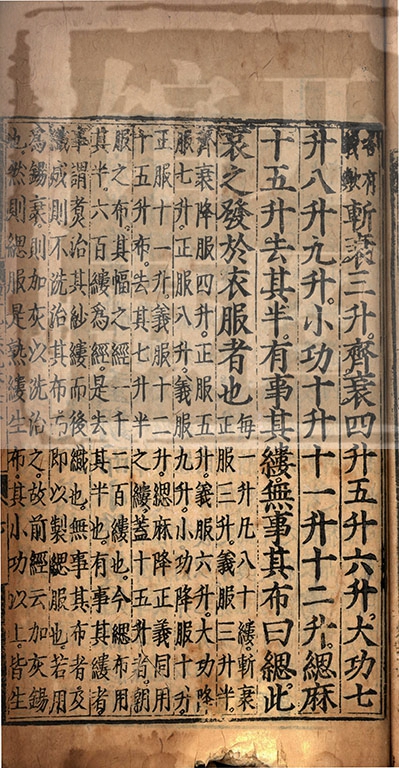 各有
義歟
斬衰三升。齊衰四升五升六升。大功七
升八升九升。小功十升十一升十二升。緦麻
十五升去其半。有事其縷。無事其布曰緦。此
哀之發於衣服者也
每一升凡八十縷。斬衰
正服三升。義服三升半。
齊衰降服四升。正服五升。義服六升。大功降
服七升。正服八升。義服九升。小功降服十升。
正服十一升。義服十二升。緦麻降正義同用
十五升布。去其七升半之縷。蓋十五升者。朝
服之布。其幅之經一千二百縷也。今緦布用
其半。六百縷為經。是去其半也。有事其縷者。
事謂煮治其紗縷而後織也。無事其布者。及
織成則不洗治其布。即以製緦服也。若用
為錫衰。則加灰以洗治之。故前經云加灰錫
也。然則緦服是熟縷生布。其小功以上。皆生